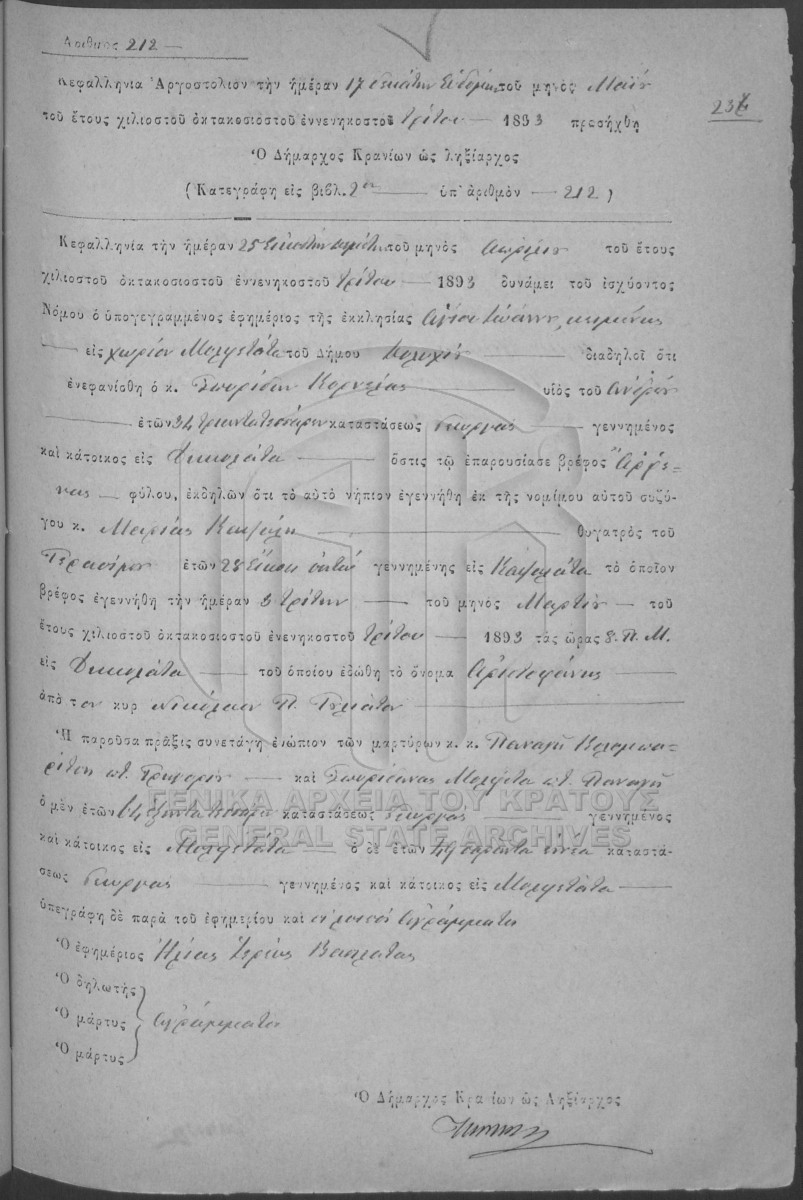 Ἀριθμὸς 212 —
Κεφαλληνία Ἀργοστόλιον τὴν ἡμέραν 17 δεκάτην ἑβδόμην τοῦ μηνὸς Μαΐου
237
τοῦ ἔτους χιλιοστοῦ ὀκτακοσιοστοῦ ἐννενηκοστοῦ τρίτου — 1893 προσήχθη
Ὁ Δήμαρχος Κρανίων ὡς ληξίαρχος
(Κατεγράφη εἰς βιβλ. 2ον — ὑπ' ἀριθμὸν — 212)
Κεφαλληνία τὴν ἡμέραν 25 εἰκοστὴν πέμπτην τοῦ μηνὸς Ἀπριλίου τοῦ ἔτους
χιλιοστοῦ ὀκτακοσιοστοῦ ἐννενηκοστοῦ τρίτου — 1893 δυνάμει τοῦ ἰσχύοντος
Νόμου ὁ ὑπογεγραμμένος ἐφημέριος τῆς ἐκκλησίας Ἁγίου Ἰωάννου κειμένης
— εἰς χωρίον τοῦ Δήμου — διαδηλοῖ ὅτι
ἐνεφανίσθη ὁ κ. Σπυρίδων — υἱὸς τοῦ Ἀνδρέου
— ἐτῶν 34 τριάντα τεσσάρων καταστάσεως γεωργὸς — γεννημένος
καὶ κάτοικος εἰς — ὅστις τῷ ἐπαρουσίασε βρέφος ἄρρε-
νος — φύλου, ἐκδηλῶν ὅτι τὸ αὐτὸ νήπιον ἐγεννήθη ἐκ τῆς νομίμου αὐτοῦ συζύ-
γου κ. Μαρίας — θυγατρὸς τοῦ
Γερασίμου ἐτῶν 28 εἴκοσι ὀκτὼ γεννημένης εἰς τὸ ὁποῖον
βρέφος ἐγεννήθη τὴν ἡμέραν 3 τρίτην — τοῦ μηνὸς Μαρτίου — τοῦ
ἔτους χιλιοστοῦ ὀκτακοσιοστοῦ ἐνενηκοστοῦ τρίτου — 1893 τὰς ὥρας 8. Π. Μ.
εἰς — τοῦ ὁποίου ἐδώθη τὸ ὄνομα Ἀριστοφάνης —
ἀπὸ τον κυρ Νικόλαον Π. —
Ἡ παροῦσα πρᾶξις συνετάγη ἐνώπιον τῶν μαρτύρων κ. κ. Παναγῆ
Γρηγορίου — καὶ Παναγῆ
ὁ μὲν ἐτῶν 64 ἑξήντα τεσσάρων καταστάσεως γεωργὸς — γεννημένος
καὶ κάτοικος εἰς — ὁ δὲ ἐτῶν 49 σαράντα ἐννέα καταστά-
σεως γεωργὸς — γεννημένος καὶ κάτοικος εἰς —
ὑπεγράφη δὲ παρὰ τοῦ ἐφημερίου καὶ οἱ λοιποὶ ἀγράμματοι
Ὁ ἐφημέριος Ἠλίας Ἱερεὺς
Ὁ δηλωτής
Ὁ μάρτυς ἀγράμματοι
Ὁ μάρτυς
Ὁ Δήμαρχος Κρανίων ὡς Ληξίαρχος
ΓΕΝΙΚΑ ΑΡΧΕΙΑ ΤΟΥ ΚΡΑΤΟΥΣ
GENERAL STATE ARCHIVES